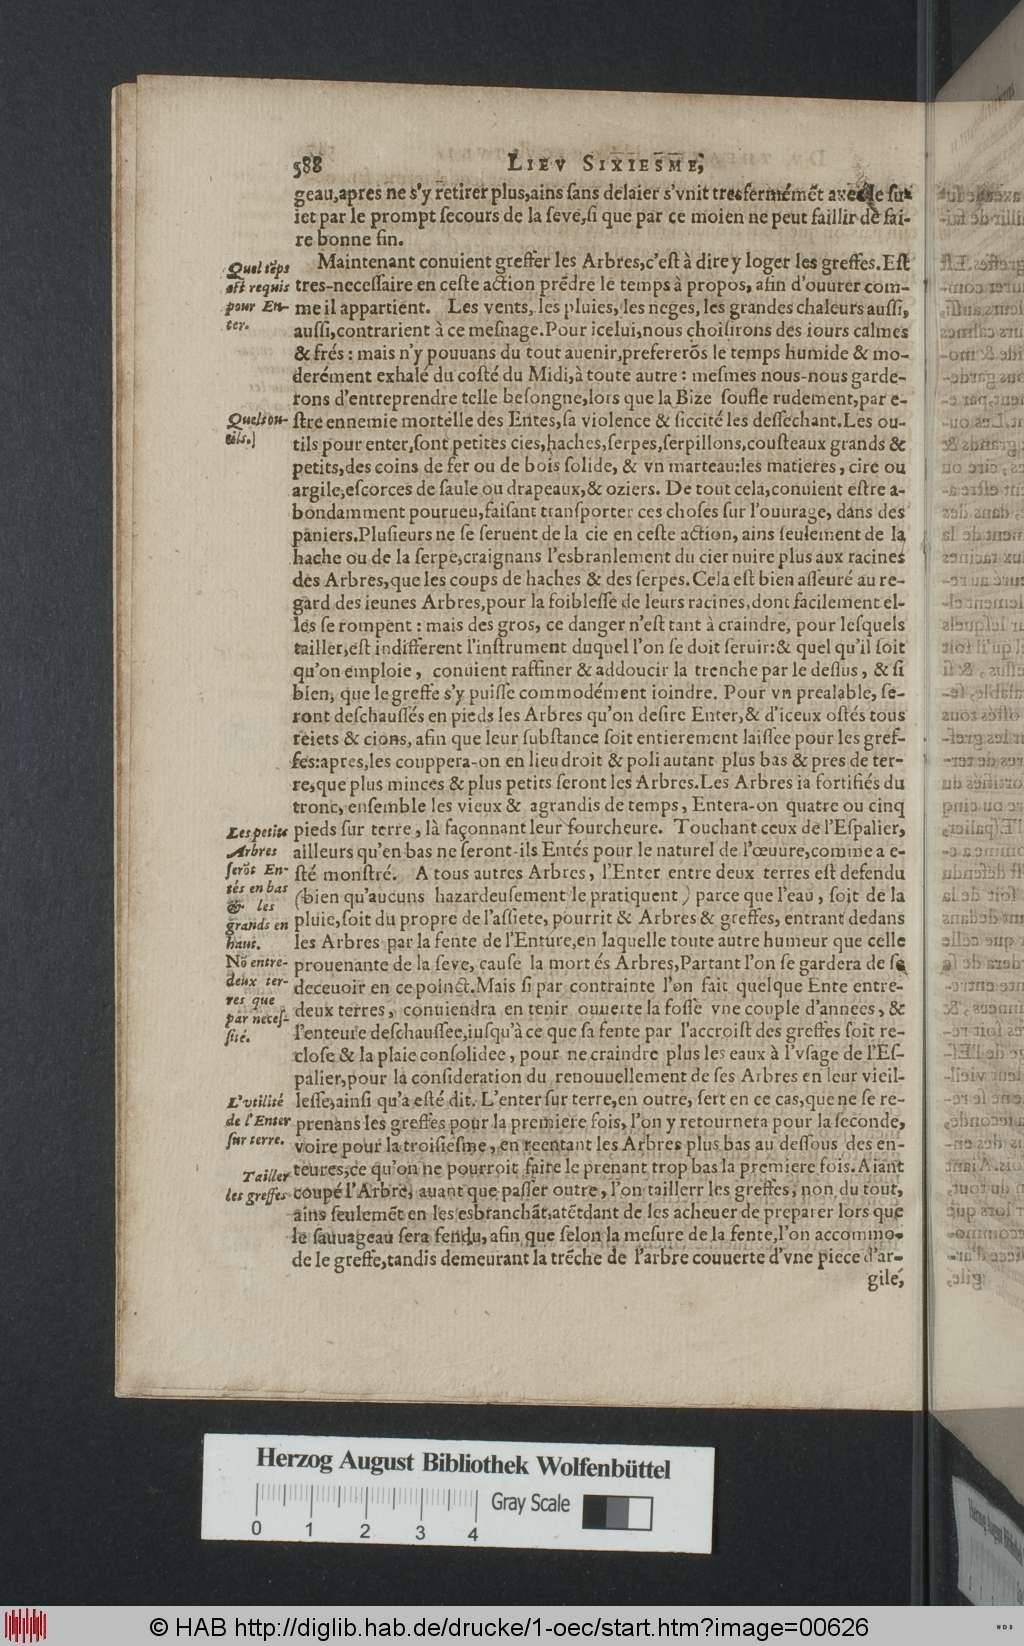 588
LIEV SIXIESME,
geau,apres ne s'y retirer plus,ains ſans delaier s'vnit tresfermémẽt auec le ſu-
iet par le prompt ſecours de la ſeve,ſi que par ce moien ne peut faillir de fai-
re bonne fin.
Maintenant conuient greffer les Arbres,c'eſt à dire y loger les greffes.Eſt
tres-neceſſaire en ceſte action prẽdre le temps à propos, afin d'ouurer com-
me il appartient. Les vents, les pluies, les neges, les grandes chaleurs auſſi,
auſſi,contrarient à ce meſnage.Pour icelui,nous choiſirons des iours calmes
& frés : mais n'y pouuans du tout auenir,prefererõs le temps humide & mo-
derément exhalé du coſté du Midi,à toute autre : meſmes nous-nous garde-
rons d'entreprendre telle beſongne,lors que la Bize ſoufle rudement,par e-
ſtre ennemie mortelle des Entes,ſa violence & ſiccité les deſſechant.Les ou-
tils pour enter,ſont petites cies,haches,ſerpes,ſerpillons,couſteaux grands &
petits,des coins de fer ou de bois ſolide, & vn marteau:les matieres, cire ou
argile,eſcorces de ſaule ou drapeaux,& oziers. De tout cela,conuient eſtre a-
bondamment pourueu,faiſant tranſporter ces choſes ſur l'ouurage, dans des
paniers.Pluſieurs ne ſe ſeruent de la cie en ceſte action, ains ſeulement de la
hache ou de la ſerpe,craignans l'esbranlement du cier nuire plus aux racines
des Arbres,que les coups de haches & des ſerpes.Cela eſt bien aſſeuré au re-
gard des ieunes Arbres,pour la foibleſſe de leurs racines,dont facilement el-
les ſe rompent : mais des gros, ce danger n'eſt tant à craindre, pour leſquels
tailler,eſt indifferent l'inſtrument duquel l'on ſe doit ſeruir:& quel qu'il ſoit
qu'on emploie, conuient raffiner & addoucir la trenche par le deſſus, & ſi
bien, que le greffe s'y puiſſe commodément ioindre. Pour vn prealable, ſe-
ront deſchauſſés en pieds les Arbres qu'on deſire Enter,& d'iceux oſtés tous
reiets & cions, afin que leur ſubſtance ſoit entierement laiſſee pour les gref-
fes:apres,les couppera-on en lieu droit & poli autant plus bas & pres de ter-
re,que plus minces & plus petits ſeront les Arbres.Les Arbres ia fortifiés du
tronc, enſemble les vieux & agrandis de temps, Entera-on quatre ou cinq
pieds ſur terre, là façonnant leur fourcheure. Touchant ceux de l'Eſpalier,
ailleurs qu'en bas ne ſeront-ils Entés pour le naturel de l'œuure,comme a e-
ſté monſtré. A tous autres Arbres, l'Enter entre deux terres eſt defendu
(bien qu'aucuns hazardeuſement le pratiquent) parce que l'eau, ſoit de la
pluie,ſoit du propre de l'aſſiete, pourrit & Arbres & greffes, entrant dedans
les Arbres par la fente de l'Enture,en laquelle toute autre humeur que celle
prouenante de la ſeve, cauſe la mort és Arbres,Partant l'on ſe gardera de ſe
deceuoir en ce poinct.Mais ſi par contrainte l'on fait quelque Ente entre-
deux terres, conuiendra en tenir ouuerte la foſſe vne couple d'annees, &
l'enteure deſchauſſee,iuſqu'à ce que ſa fente par l'accroiſt des greffes ſoit re-
cloſe & la plaie conſolidee, pour ne craindre plus les eaux à l'vſage de l'Eſ-
palier,pour la conſideration du renouuellement de ſes Arbres en leur vieil-
leſſe,ainſi qu'a eſté dit. L'enter ſur terre,en outre, ſert en ce cas,que ne ſe re-
prenans les greffes pour la premiere fois, l'on y retournera pour la ſeconde,
voire pour la troiſieſme, en reentant les Arbres plus bas au deſſous des en-
teures,ce qu'on ne pourroit faire le prenant trop bas la premiere fois.Aiant
coupé l'Arbre, auant que paſſer outre, l'on taillerr les greffes, non du tout,
ains ſeulemẽt en les esbranchãt,atẽtdant de les acheuer de preparer lors que
le ſauuageau ſera fendu, afin que ſelon la meſure de la fente,l'on accommo-
de le greffe,tandis demeurant la trẽche de l'arbre couuerte d'vne piece d'ar-
gile,
Quel tẽps
eſt requis
pour En-
ter.
Quels ou-
tils.]
Les petits
Arbres
ſerõt En-
tés en bas
& les
grands en
haut.
Nõ entre-
deux ter-
res que
par neceſ-
ſité.
L'vtilité
de l'Enter
ſur terre.
Tailler
les greffes
Herzog August Bibliothek Wolfenbüttel
Gray Scale
0 1 2 3 4
© HAB http://diglib.hab.de/drucke/1-oec/start.htm?image=00626